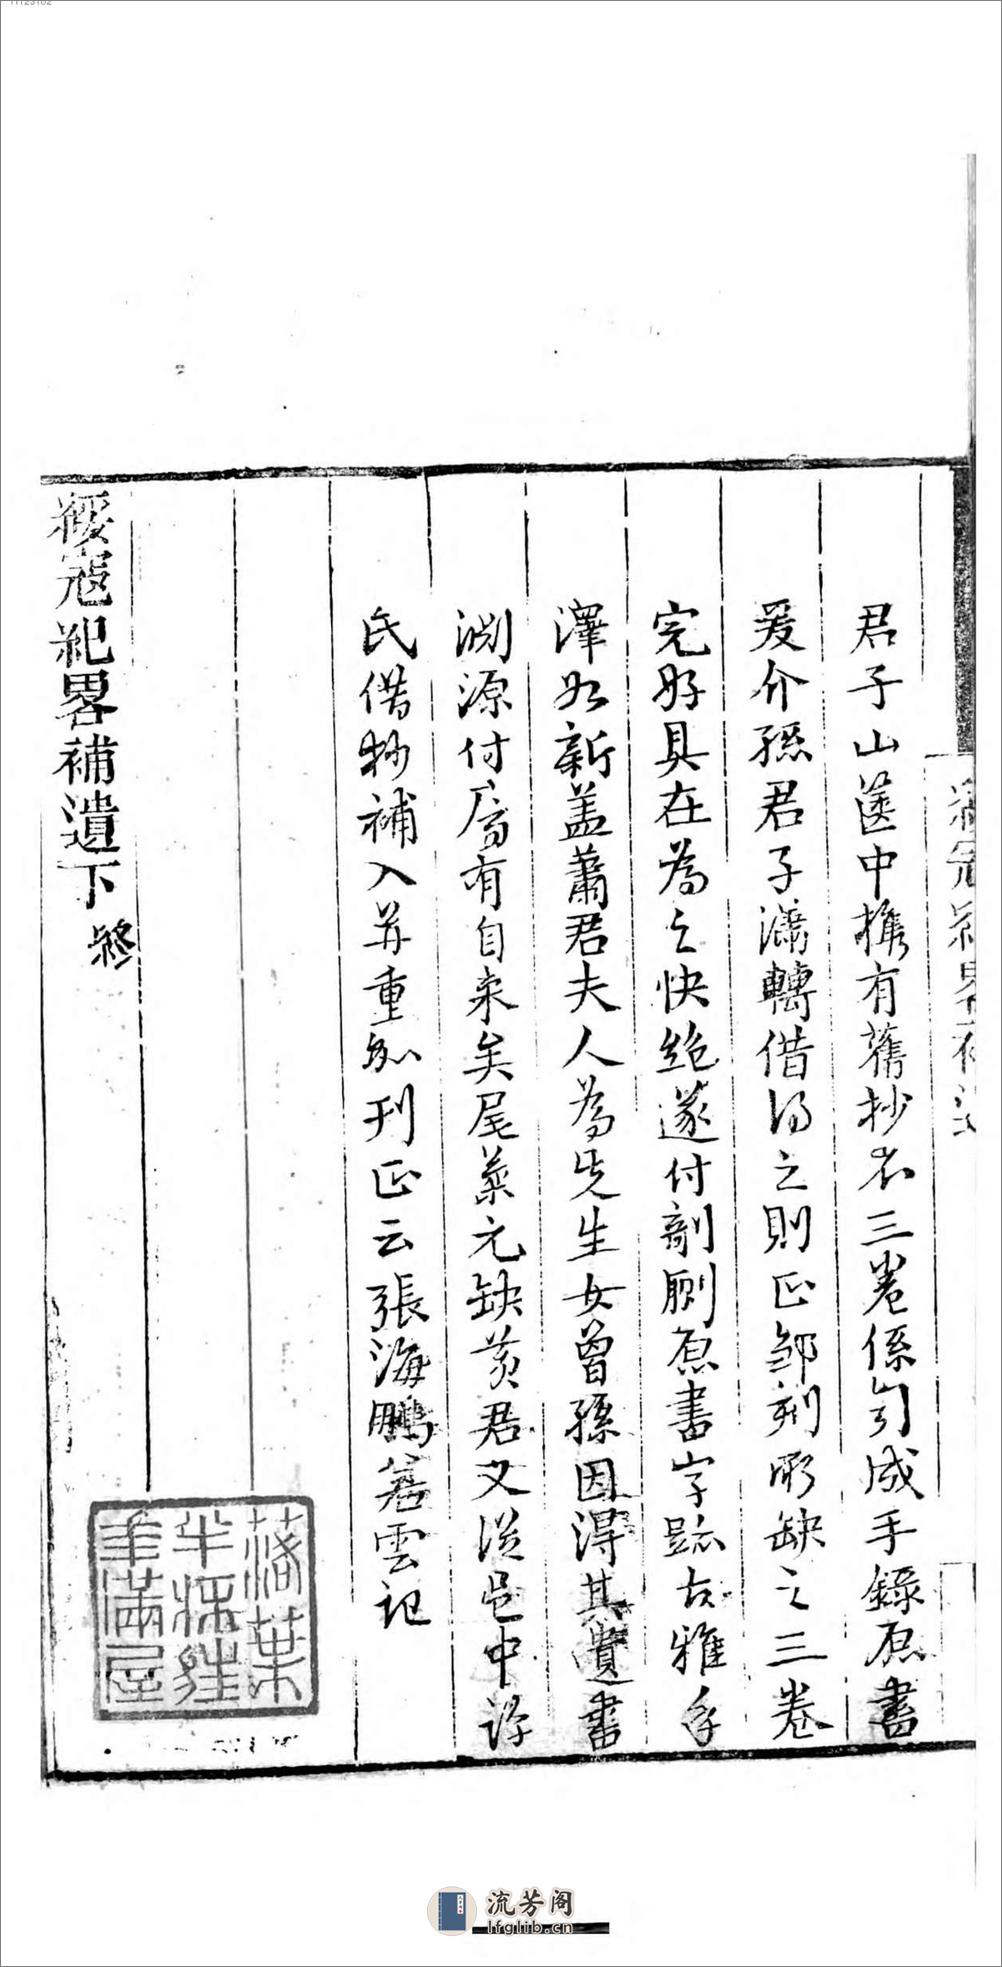 君子山篋中攜有舊抄本三卷係句成手錄原書
爰介孫君子瀟轉借得之則正鄒刻所缺之三卷
完好具在為之快絕遂付剞劂原書字跡古雅手
澤如新蓋蕭君夫人為先生女曾孫因得其遺書
淵源付屬有自來矣尾葉元缺黃君又從邑中許
氏借抄補入并重加刊正云張海鵬若雲記
綏寇紀畧補遺下 終
落葉
半牀
滿屋
流芳阁
lfglib.cn